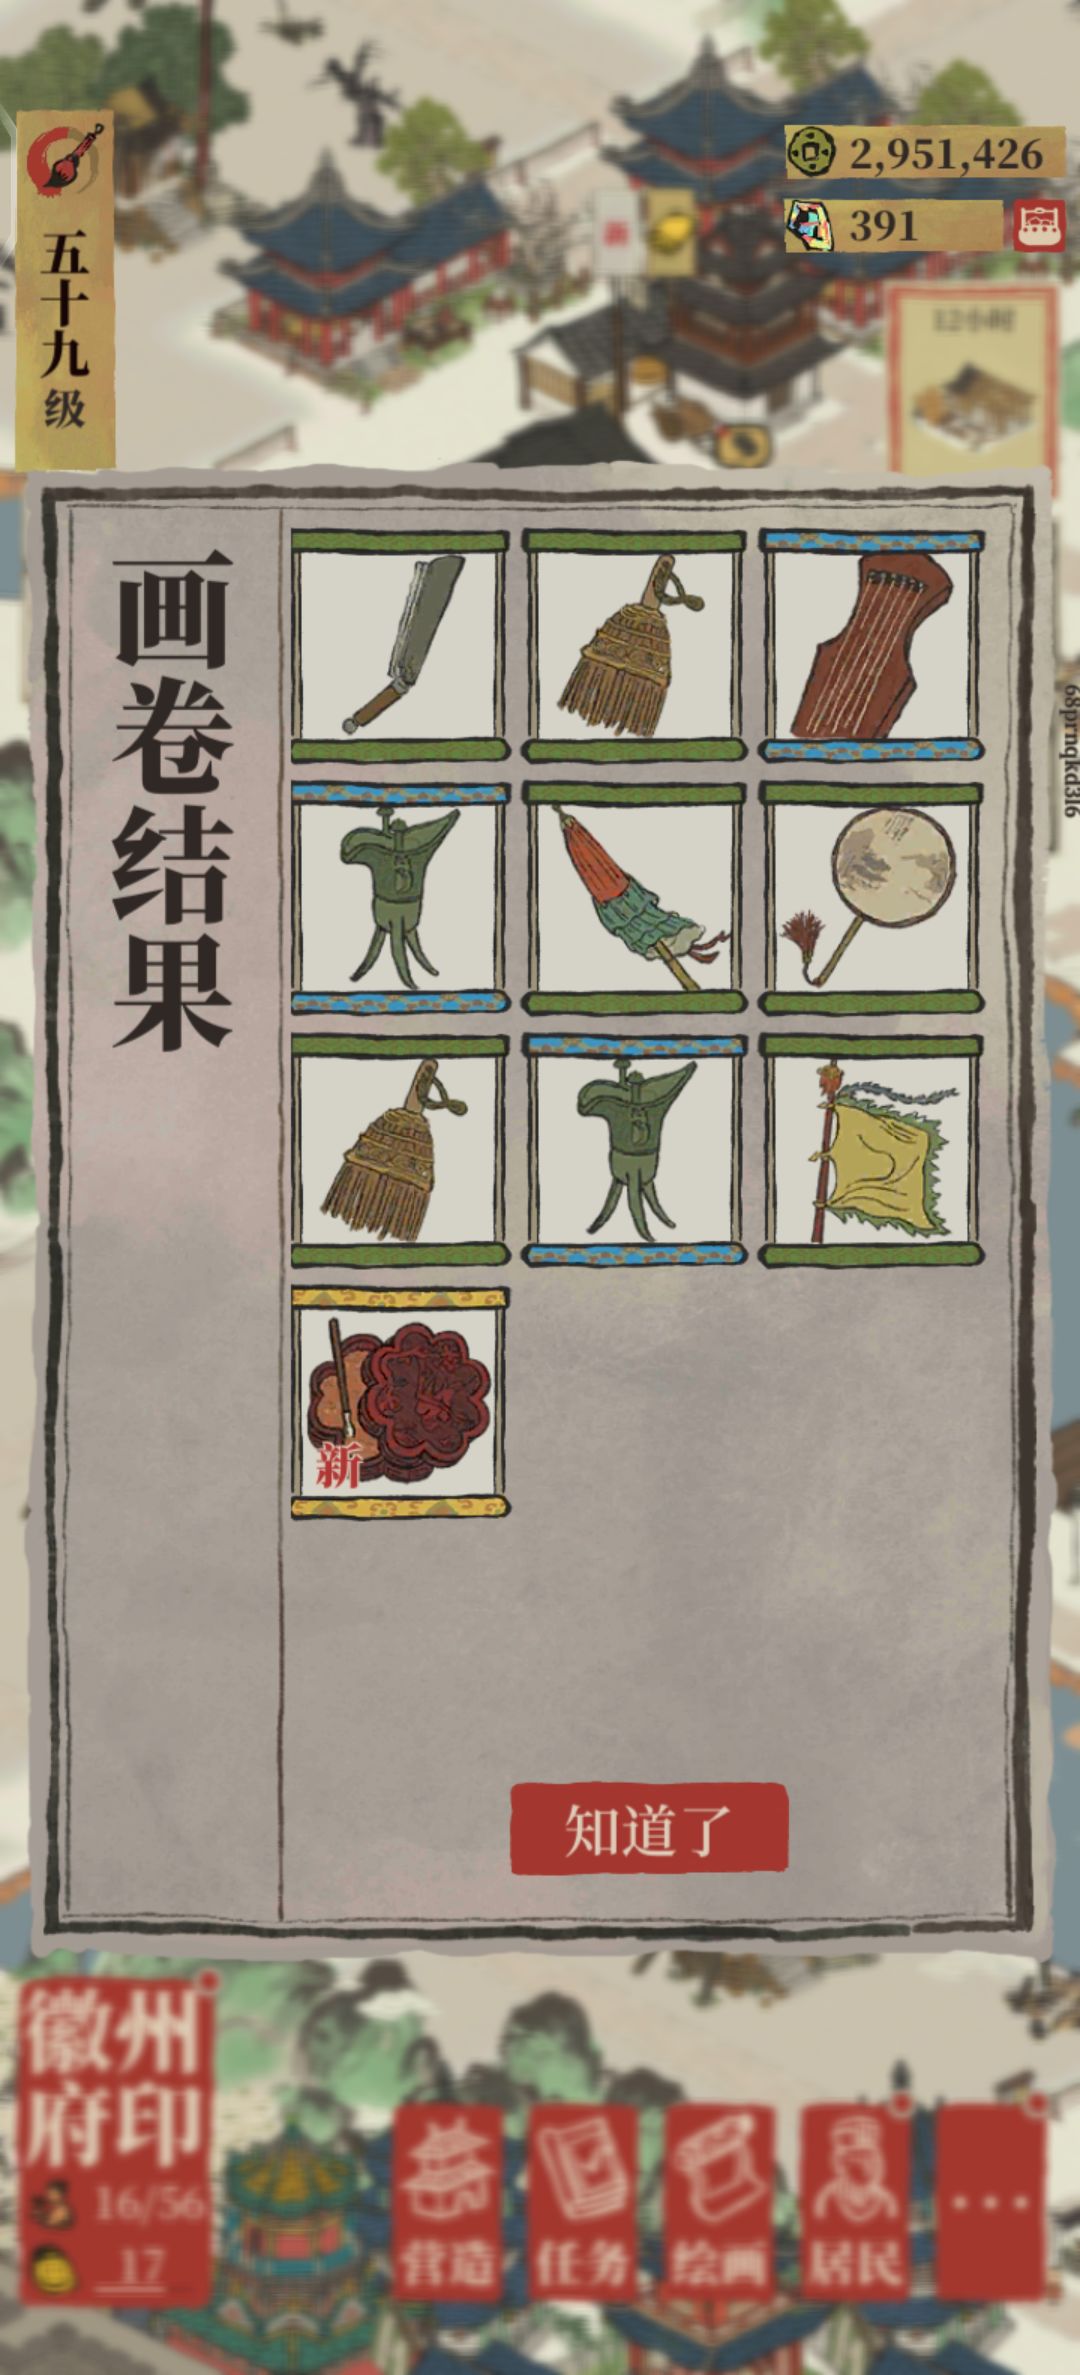 五十九级
2,951,426
391
12小时
画卷结果
68prnqkd3l6
新
知道了
徽州
府印
16/56
17
营造
任务
绘画
居民